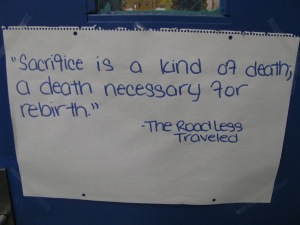 "Sacrifice is a kind of death,
a death necessary for
rebirth."
-The Road less
Traveled